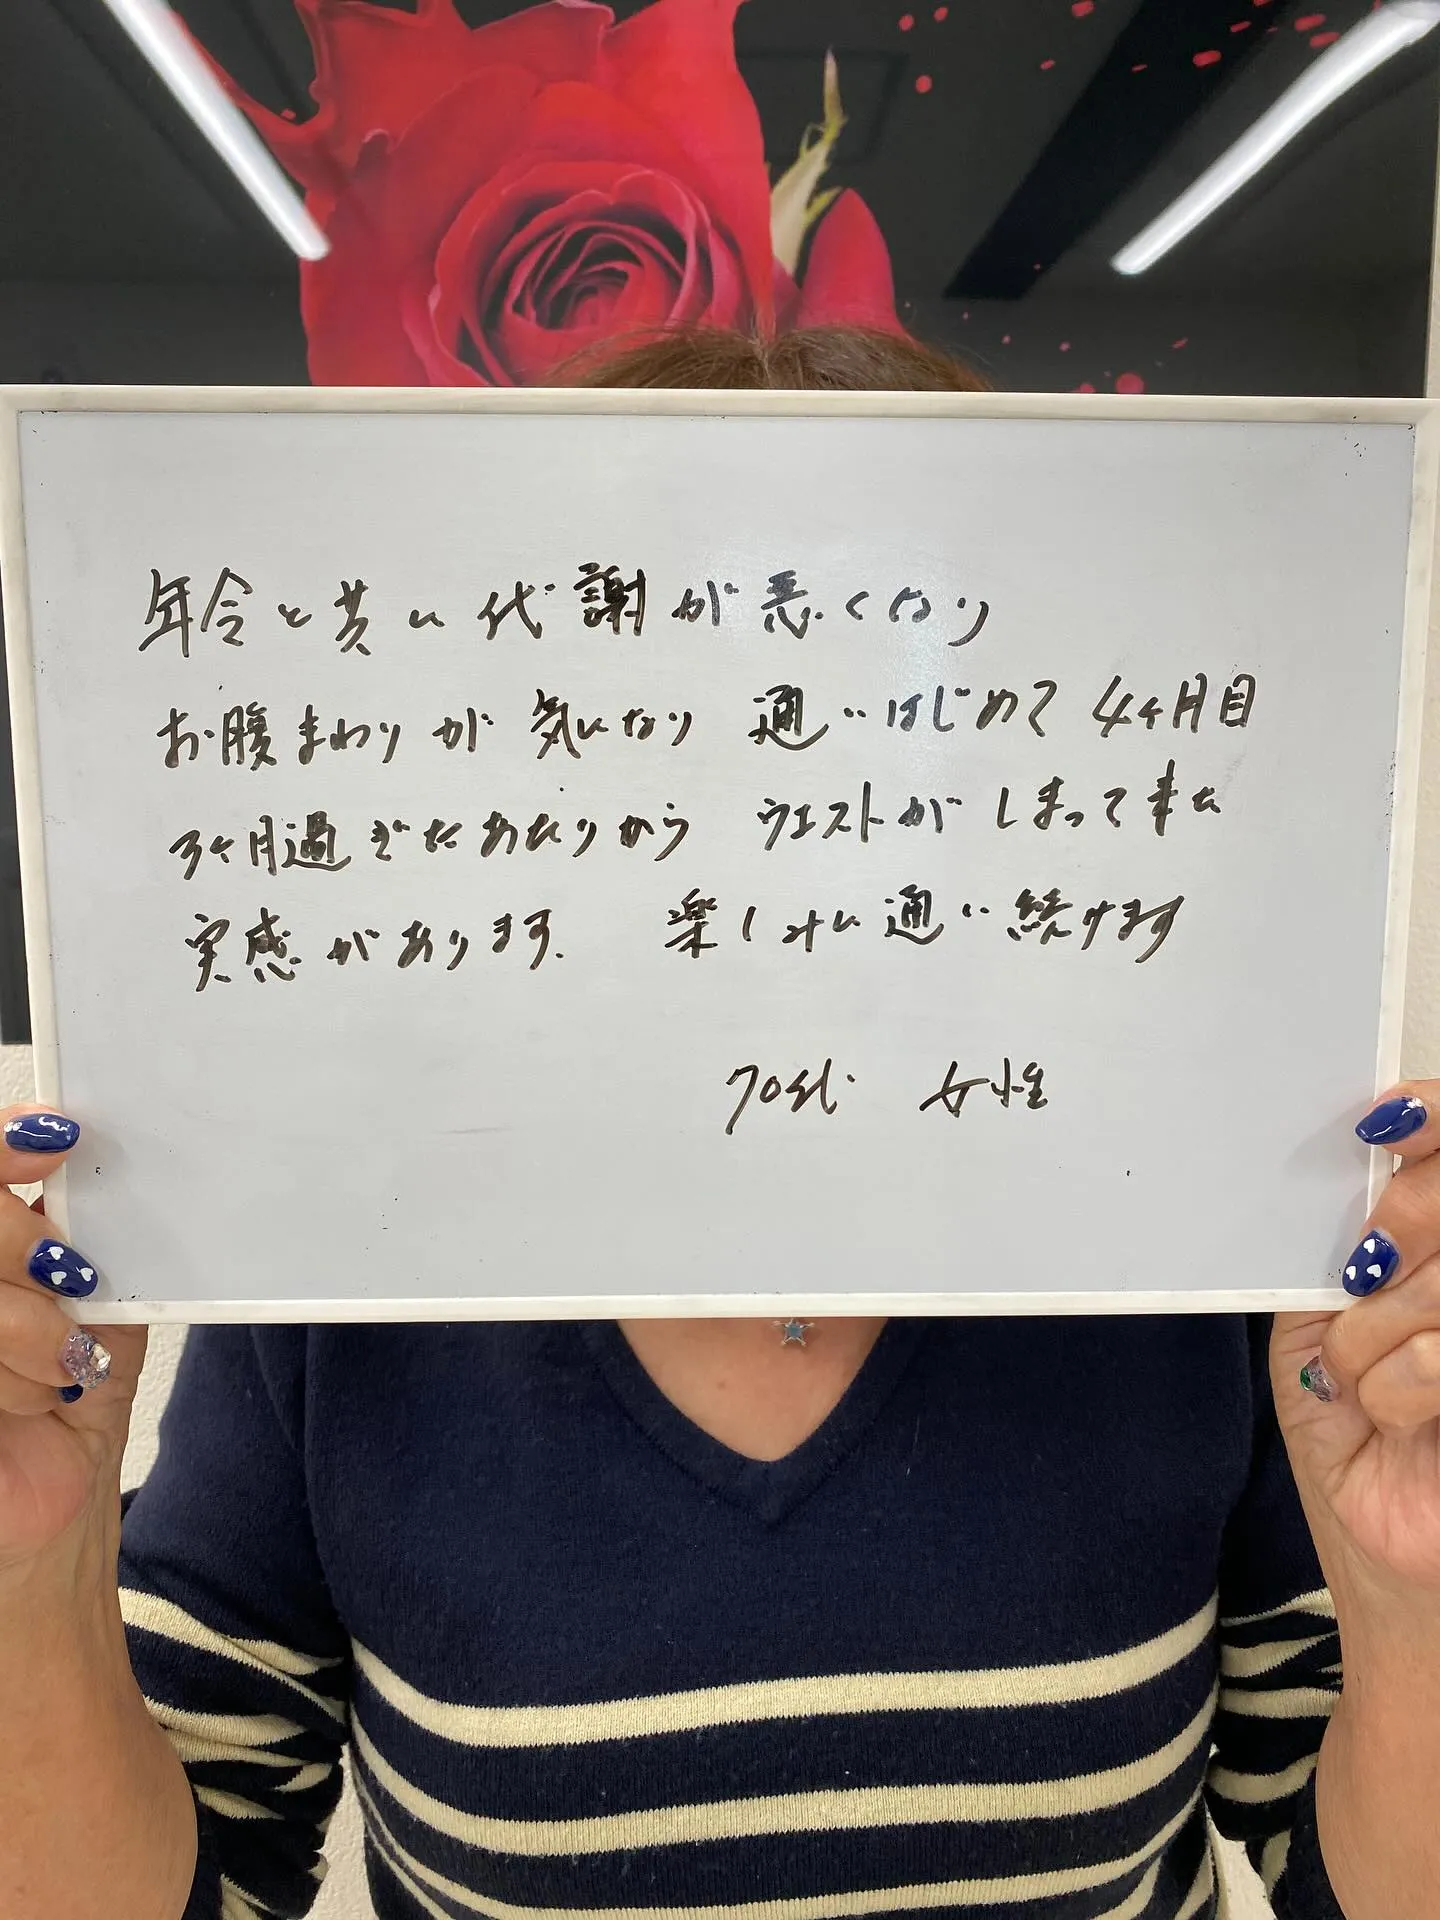 年令と共に代謝が悪くなり
お腹まわりが気になり 通いはじめて 4ヶ月目
3ヶ月過ぎたあたりから ウエストがしまって来た
実感があります。 楽しみに通い続けます
70代 女性